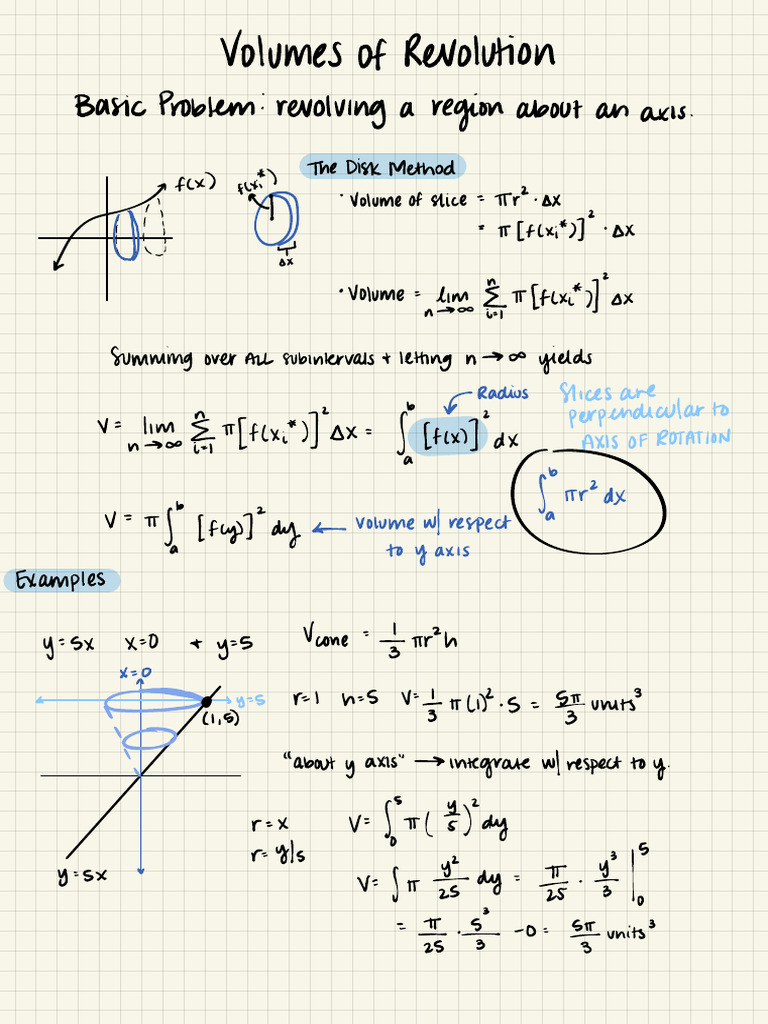 Volumes of Revolution
Basic Problem: revolving a region about an axis.
The Disk Method
f(x)
f(xᵢ*)
Δx
· Volume of slice = πr² · Δx
= π[f(xᵢ*)]² · Δx
· Volume = lim n→∞ Σ i=1 n π[f(xᵢ*)]² Δx
Summing over ALL subintervals + letting n → ∞ yields
Radius
V = lim n→∞ Σ i=1 n π[f(xᵢ*)]² Δx = ∫ₐᵇ [f(x)]² dx
Slices are
perpendicular to
AXIS OF ROTATION
∫ₐᵇ πr² dx
V = π∫ₐᵇ [f(y)]² dy ← Volume w/ respect
to y axis
Examples
y=5x x=0 + y=5
V cone = 1/3 πr²h
x=0
y=5
(1,5)
y=5x
r=1 h=5 V= 1/3 π(1)² · 5 = 5π/3 units³
"about y axis" → integrate w/ respect to y.
r=x
r= y/5
V= ∫₀⁵ π(y/5)² dy
V= ∫ π y²/25 dy = π/25 · y³/3 |₀⁵
= π/25 · 5³/3 -0 = 5π/3 units³